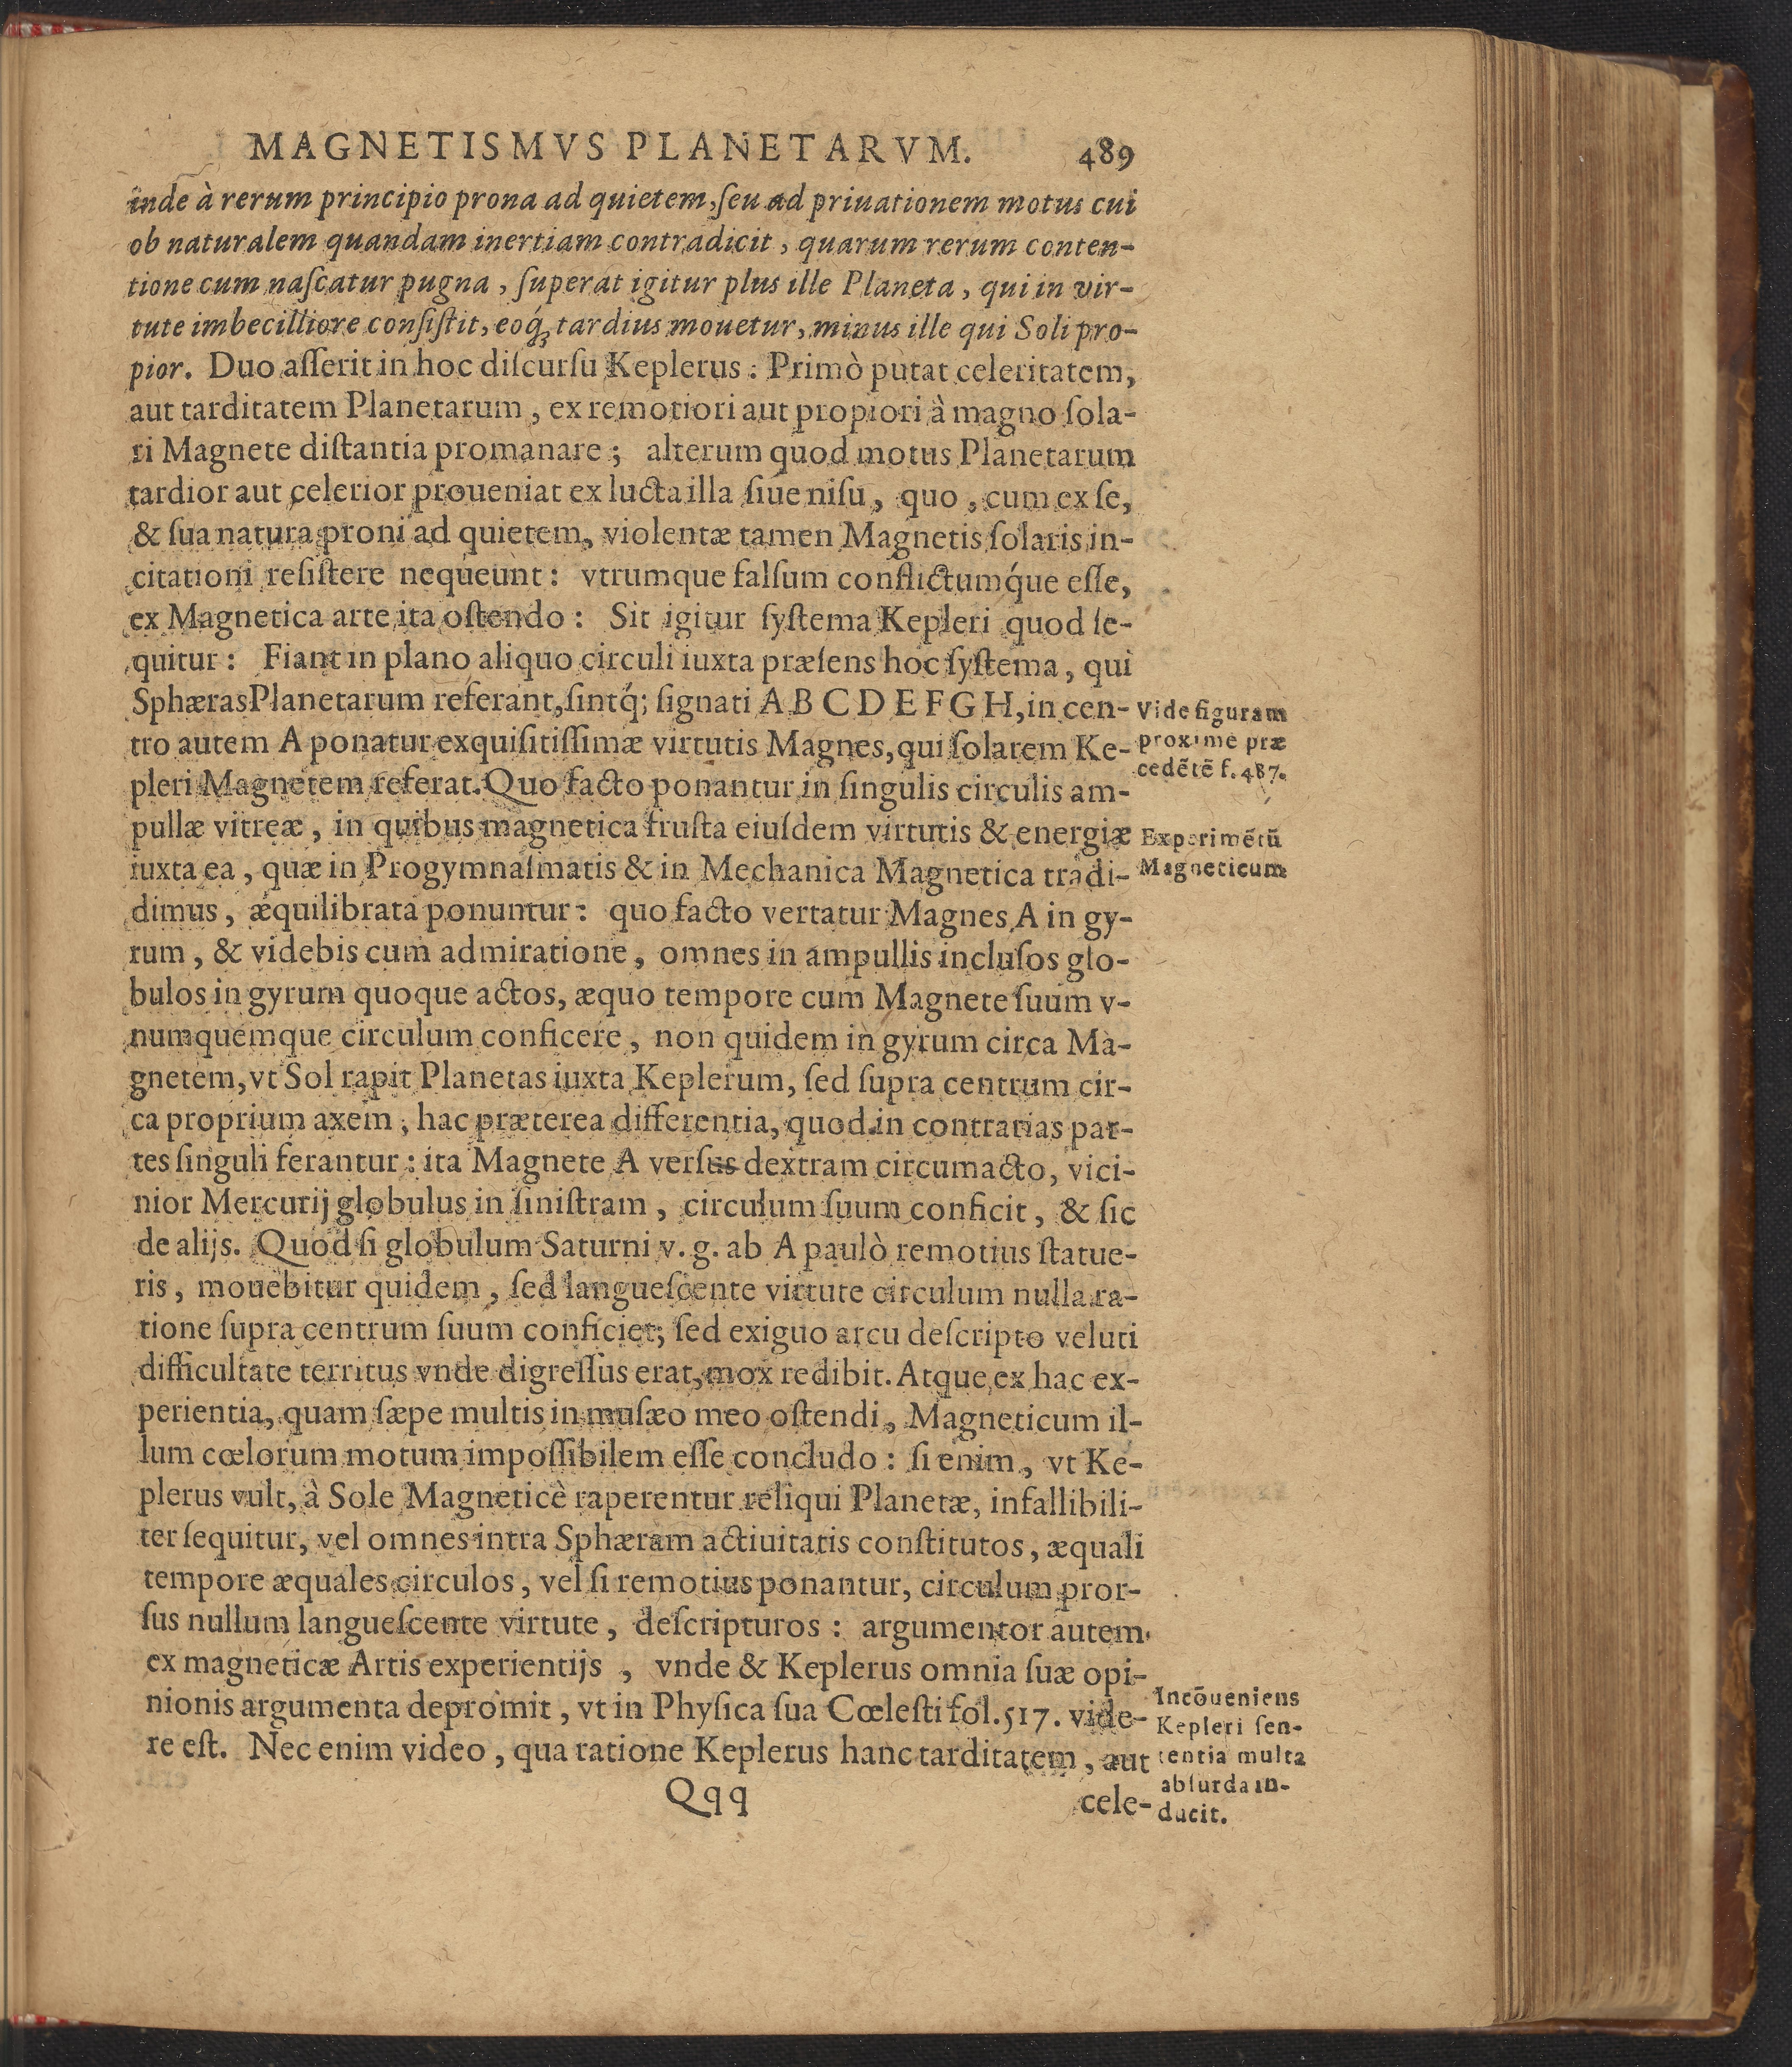 MAGNETISMVS PLANETARVM. 489
inde à rerum principio prona ad quietem, ſeu ad priuationem motus cui
ob naturalem quandam inertiam contradicit, quarum rerum conten-
tione cum naſcatur pugna, ſuperat igitur plus ille Planeta, qui in vir-
tute imbecilliore conſiſtit, eoq́ꝫ tardius mouetur, minus ille qui Soli pro-
pior. Duo aſſerit in hoc diſcurſu Keplerus: Primò putat celeritatem,
aut tarditatem Planetarum, ex remotiori aut propiori à magno ſola-
ri Magnete diſtantia promanare; alterum quod motus Planetarum
tardior aut celerior proueniat ex lucta illa ſiue niſu, quo, cum ex ſe,
& ſua natura proni ad quietem, violentæ tamen Magnetis ſolaris in-
citationi reſiſtere nequeunt: vtrumque falſum conflictumq́ue eſſe,
ex Magnetica arte ita oſtendo: Sit igitur ſyſtema Kepleri quod ſe-
quitur: Fiant in plano aliquo circuli iuxta præſens hoc ſyſtema, qui
SphærasPlanetarum referant, ſintq́; ſignati A B C D E F G H, in cen-
tro autem A ponatur exquiſitiſſimæ virtutis Magnes, qui ſolarem Ke-
pleri Magnetem referat. Quo facto ponantur in ſingulis circulis am-
pullæ vitreæ, in quibus magnetica fruſta eiuſdem virtutis & energiæ
iuxta ea, quæ in Progymnaſmatis & in Mechanica Magnetica tradi-
dimus, æquilibrata ponuntur: quo facto vertatur Magnes A in gy-
rum, & videbis cum admiratione, omnes in ampullis incluſos glo-
bulos in gyrum quoque actos, æquo tempore cum Magnete ſuum v-
numquemque circulum conficere, non quidem in gyrum circa Ma-
gnetem, vt Sol rapit Planetas iuxta Keplerum, ſed ſupra centrum cir-
ca proprium axem, hac præterea differentia, quod in contrarias par-
tes ſinguli ferantur: ita Magnete A verſus dextram circumacto, vici-
nior Mercurij globulus in ſiniſtram, circulum ſuum conficit, & ſic
de alijs. Quod ſi globulum Saturni v. g. ab A paulò remotius ſtatue-
ris, mouebitur quidem, ſed langueſcente virtute circulum nulla ra-
tione ſupra centrum ſuum conficiet; ſed exiguo arcu deſcripto veluti
difficultate territus vnde digreſſus erat, mox redibit. Atque ex hac ex-
perientia, quam ſæpe multis in muſæo meo oſtendi, Magneticum il-
lum cœlorum motum impoſſibilem eſſe concludo: ſi enim, vt Ke-
plerus vult, à Sole Magneticè raperentur reliqui Planetæ, infallibili-
ter ſequitur, vel omnes intra Sphæram actiuitatis conſtitutos, æquali
tempore æquales circulos, vel ſi remotius ponantur, circulum pror-
ſus nullum langueſcente virtute, deſcripturos: argumentor autem
ex magneticæ Artis experientijs, vnde & Keplerus omnia ſuæ opi-
nionis argumenta depromit, vt in Phyſica ſua Cœleſti fol. 517. vide-
re eſt. Nec enim video, qua ratione Keplerus hanc tarditatem, aut
Qqq cele-
Vide figuram
proxime præ
cedētē f. 487.
Experimētū
Magneticum
Incōueniens
Kepleri ſen-
tentia multa
abſurda in-
ducit.